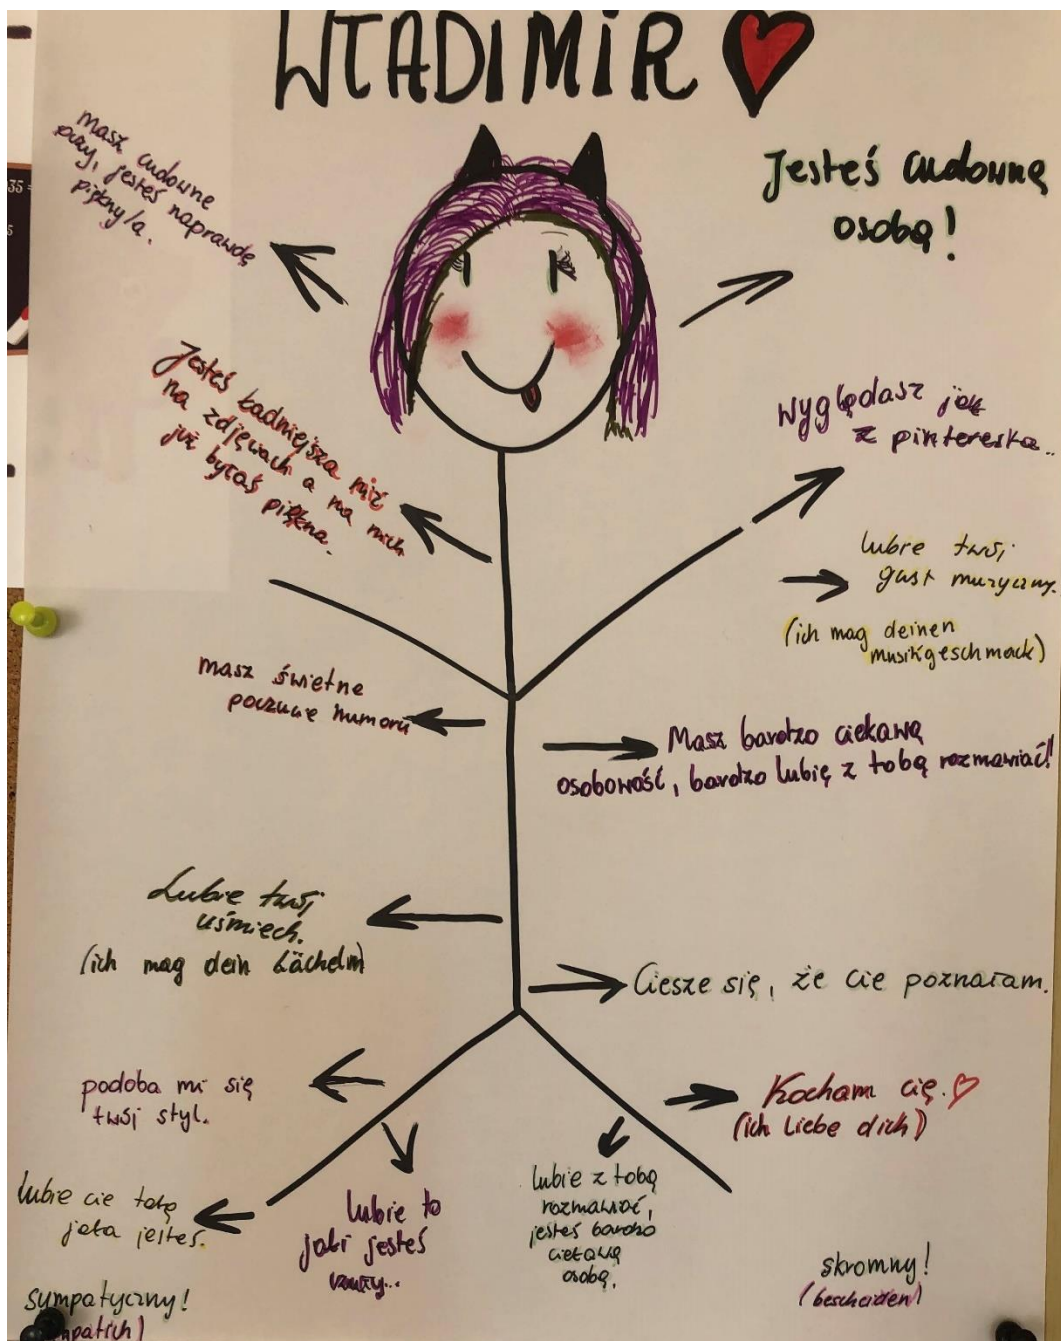 WŁADIMIR
Masz cudowne
oczy, jesteś naprawdę
piękny/a.
Jesteś cudowną
osobą!
Jesteś ładniejsza niż
na zdjęciach a na nich
już byłaś piękna.
wyglądasz jak
z pinteresta..
lubie twój
gust muzyczny.
(ich mag deinen
musikgeschmack)
masz świetne
poczucie humoru
Masz bardzo ciekawą
osobowość, bardzo lubię z tobą rozmawiać!
Lubie twój
uśmiech.
(ich mag dein Lächeln)
Ciesze się, że cie poznałam.
podoba mi się
twój styl.
Kocham cię.
(ich Liebe dich)
lubie cie taką
jaka jesteś.
lubie to
jaki jesteś
lubie z tobą
rozmawiać,
jesteś bardzo
ciekawą
osobą.
skromny!
(bescheiden)
sympatyczny!
35